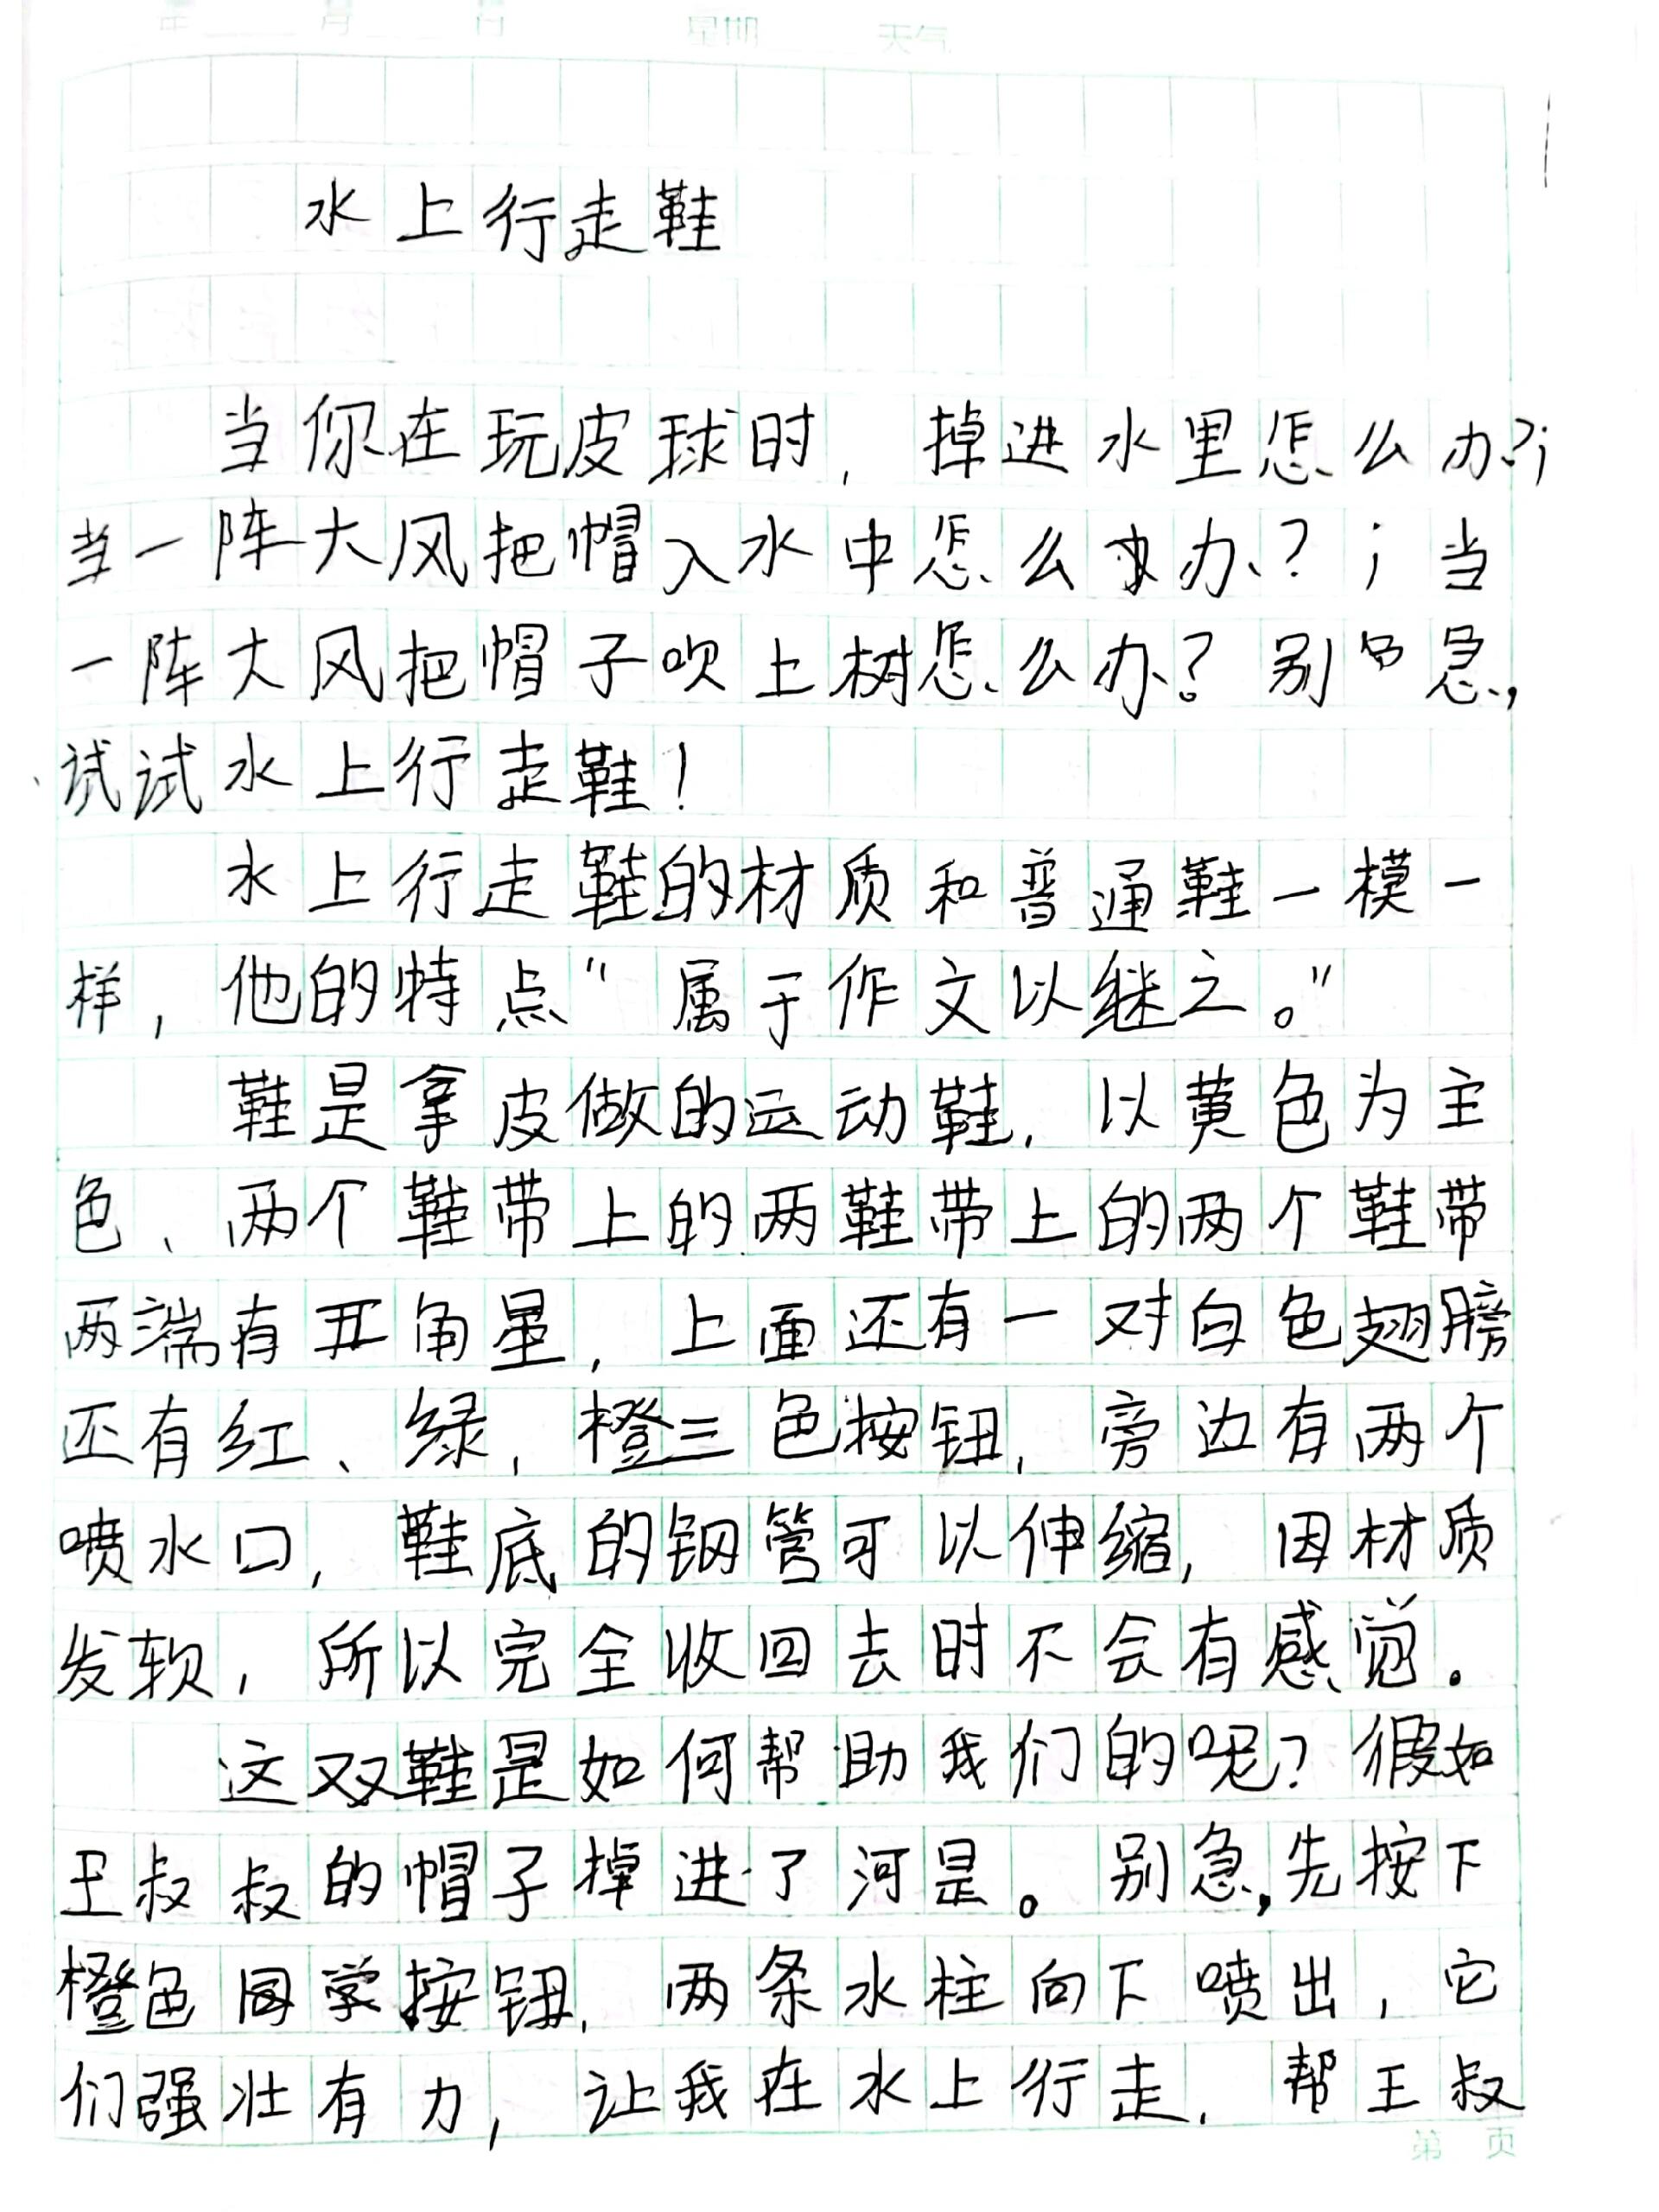 年 月 日 星期 天气
水上行走鞋
当你在玩皮球时，掉进水里怎么办?；
当一阵大风把帽入水中怎么办？；当
一阵大风把帽子吹上树怎么办？别急，
试试水上行走鞋！
水上行走鞋的材质和普通鞋一模一
样，他的特点“属于作文以继之。”
鞋是拿皮做的运动鞋，以黄色为主
色、两个鞋带上的两鞋带上的两个鞋带
两端有五角星，上面还有一对白色翅膀
还有红、绿，橙三色按钮，旁边有两个
喷水口，鞋底的钢管可以伸缩，因材质
发软，所以完全收回去时不会有感觉。
这双鞋是如何帮助我们的呢？假如
王叔叔的帽子掉进了河是。别急，先按下
橙色同学按钮，两条水柱向下喷出，它
们强壮有力，让我在水上行走，帮王叔
第 页